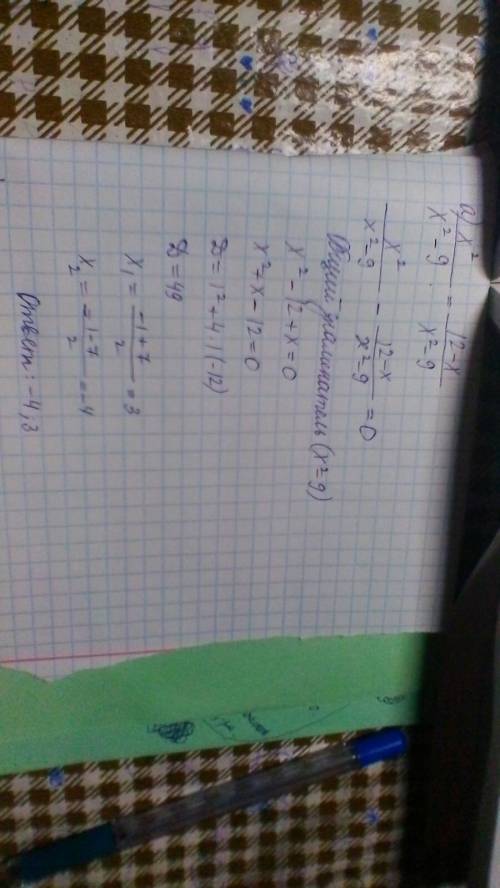 а) x²/x²-9 = 12-x/x²-9
x²/x²-9 - 12-x/x²-9 = 0
Общий знаменатель (x²-9)
x² - 12 + x = 0
x² + x - 12 = 0
D = 1² + 4·(-12)
D = 49
x₁ = -1+7/2 = 3
x₂ = -1-7/2 = -4
Ответ: -4; 3